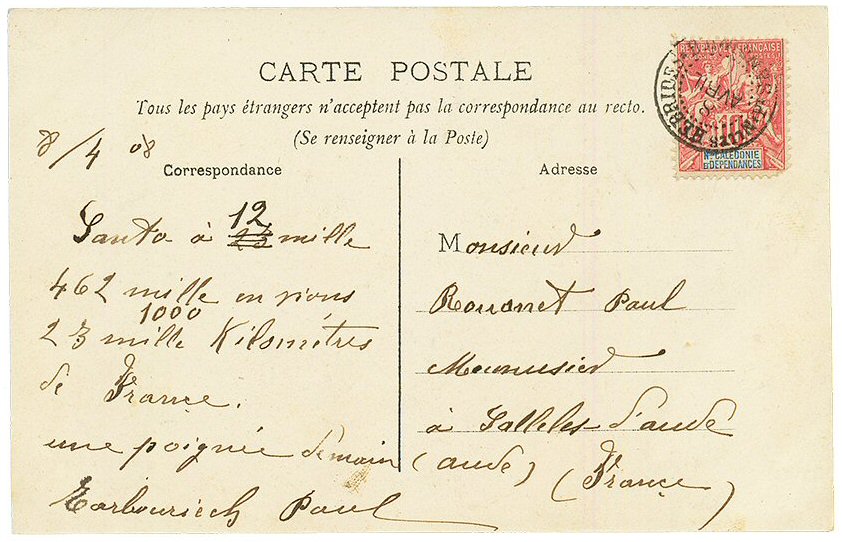 CARTE POSTALE
Tous les pays étrangers n'acceptent pas la correspondance au recto.
(Se renseigner à la Poste)
8/4 08
Correspondance
Santo à 12 mille
462 mille environs
1000
23 mille Kilomètres
de France.
une poignée de main
Tarbouriech Paul
RÉPUBLIQUE FRANÇAISE
HÉBRIDES
8 AVRIL
10
Nlle CALÉDONIE
ET DÉPENDANCES
Adresse
Monsieur
Rouanet Paul
Menuisier
à Salleles d'aude
(aude) (France)